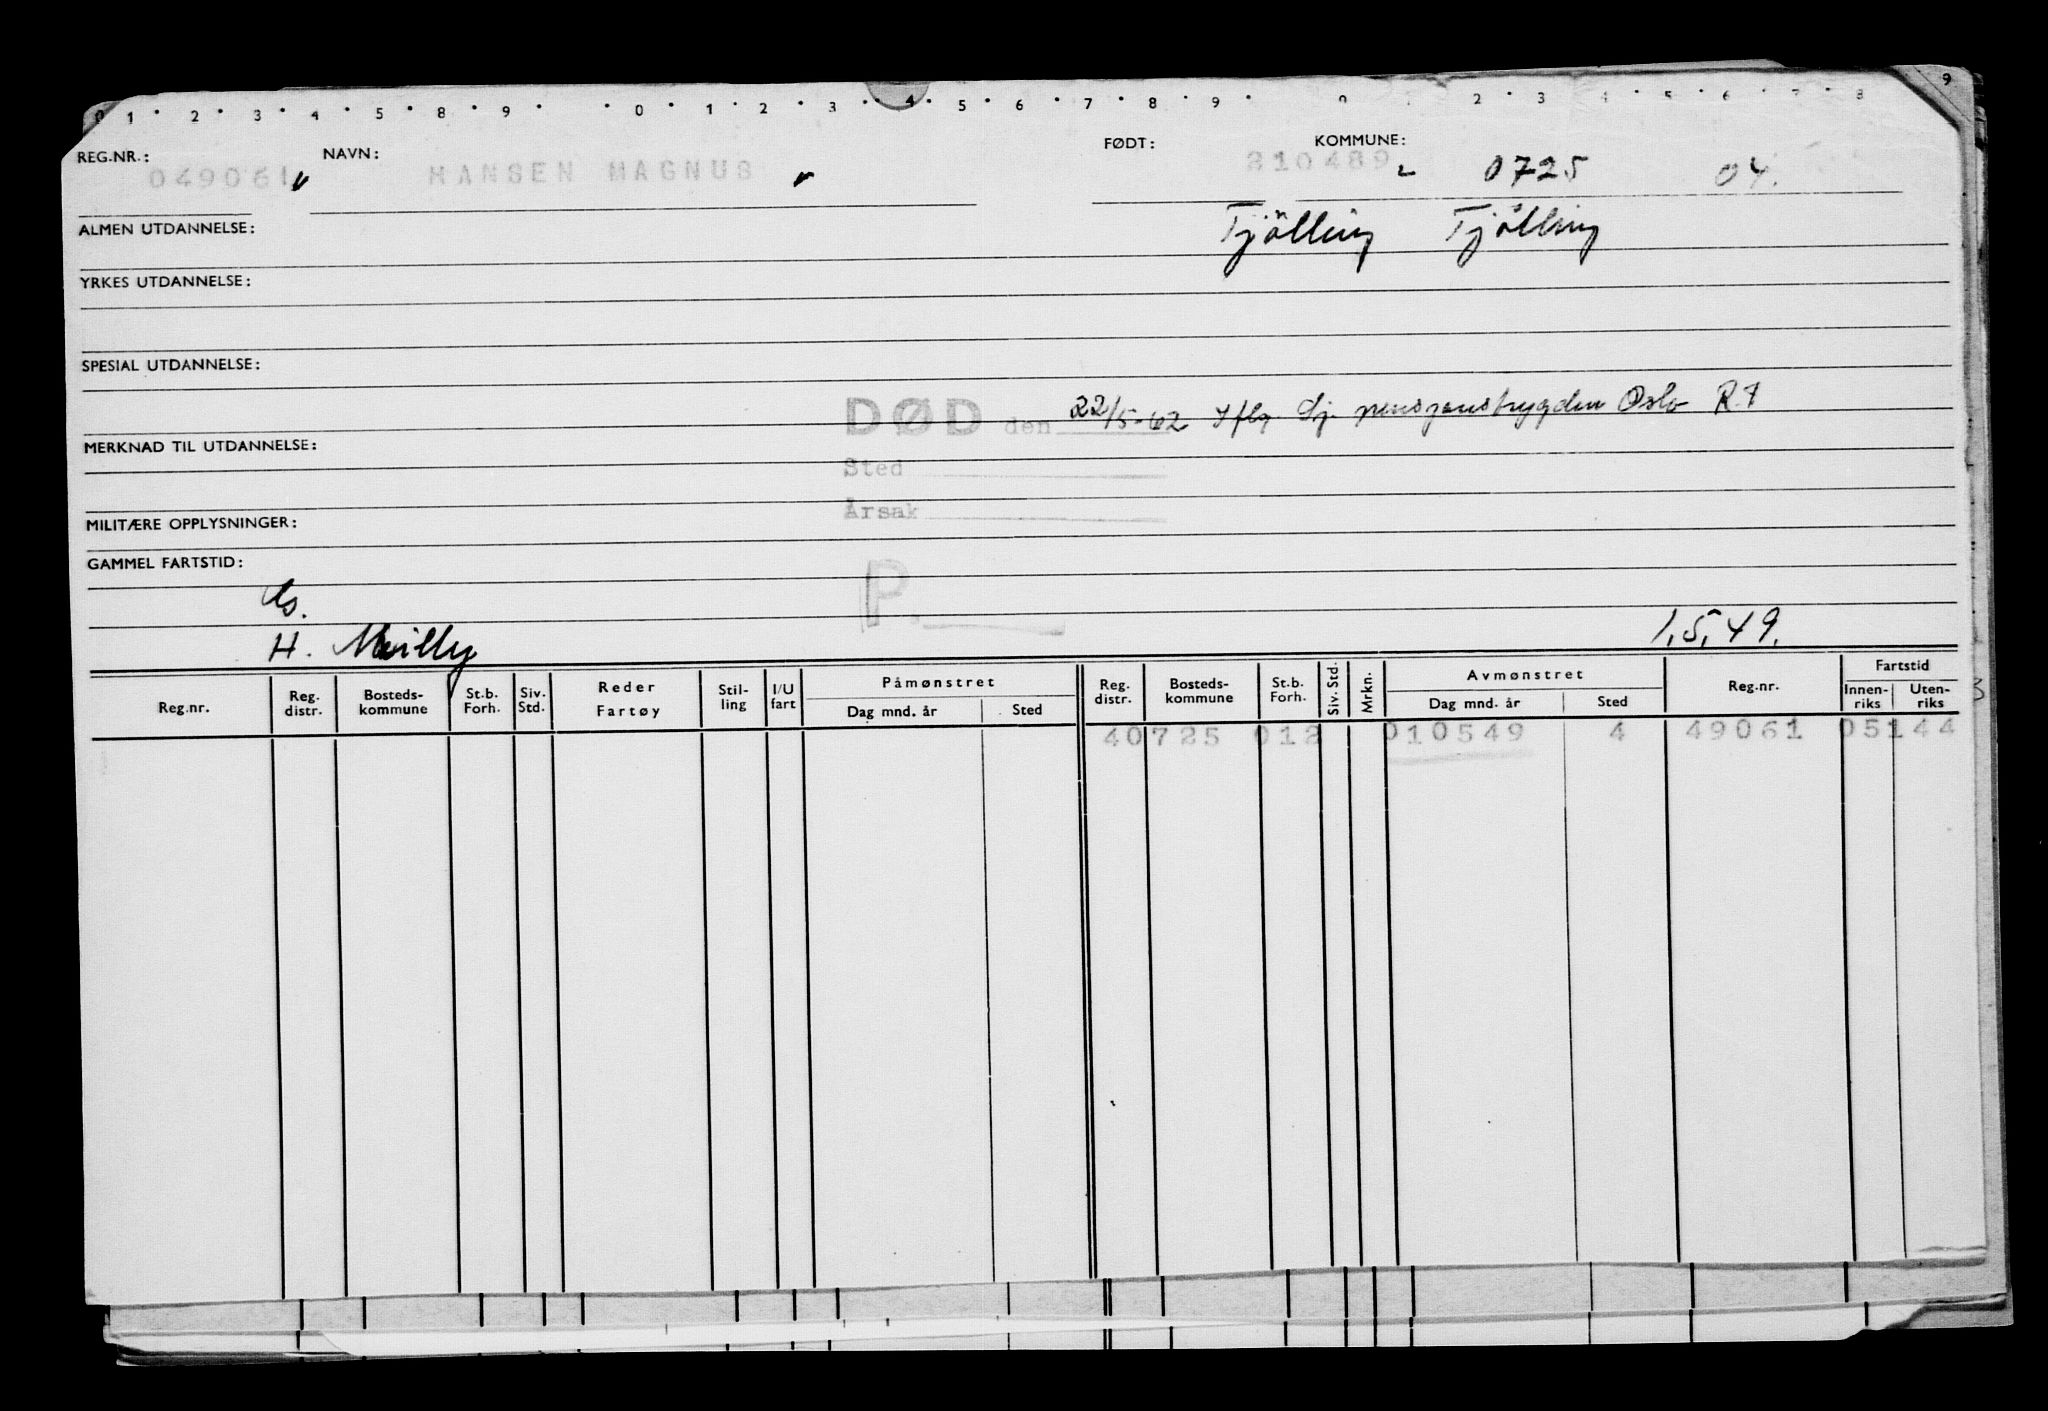 0 1 2 3 4 5 8 9 0 1 2 3 4 5 6 7 8 9 0 2 3 4 5 6 7 8 9
REG.NR.: 049061 NAVN: HANSEN MAGNUS FØDT: 210489 KOMMUNE: 0725 04.
ALMEN UTDANNELSE: Tjölling Tjölling
YRKES UTDANNELSE:
SPESIAL UTDANNELSE:
DØD den 22/5-62 Iflg. Sj. pensjonstrygden Oslo R.F
MERKNAD TIL UTDANNELSE:
Sted
MILITÆRE OPPLYSNINGER: Årsak
GAMMEL FARTSTID:
P.
H. Milly 1.5.49.
Reg.nr. Reg. distr. Bosteds-kommune St.b. Forh. Siv. Std. Reder Fartøy Stil-ling I/U fart Påmønstret Dag mnd. år Sted Reg. distr. Bosteds-kommune St.b. Forh. Siv. Std. Mrkn. Avmønstret Dag mnd. år Sted Reg.nr. Fartstid Innen-riks Uten-riks
40725 012 010549 4 49061 05144